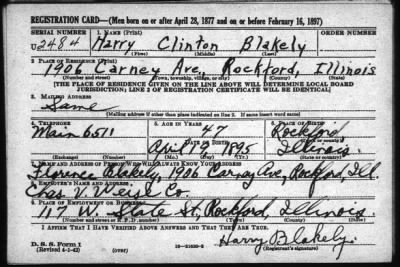 REGISTRATION CARD—(Men born on or after April 28, 1877 and on or before February 16, 1897)
SERIAL NUMBER 1. NAME (Print) ORDER NUMBER
U 2484 Harry Clinton Blakely
(First) (Middle) (Last)
2. PLACE OF RESIDENCE (Print)
1906 Carney Ave, Rockford, Illinois
(Number and street) (Town, township, village, or city) (County) (State)
[THE PLACE OF RESIDENCE GIVEN ON THE LINE ABOVE WILL DETERMINE LOCAL BOARD
JURISDICTION; LINE 2 OF REGISTRATION CERTIFICATE WILL BE IDENTICAL]
3. MAILING ADDRESS
Same
(Mailing address if other than place indicated on line 2. If same insert word same)
4. TELEPHONE 5. AGE IN YEARS 6. PLACE OF BIRTH
47 Rockford
Main 6511 DATE OF BIRTH
April 9 1895 Illinois
(Exchange) (Number) (Mo.) (Day) (Yr.) (State or country)
7. NAME AND ADDRESS OF PERSON WHO WILL ALWAYS KNOW YOUR ADDRESS
Florence Blakely, 1906 Carney Ave, Rockford, Ill.
8. EMPLOYER'S NAME AND ADDRESS
Chas. V. Weise Co.
9. PLACE OF EMPLOYMENT OR BUSINESS
117 W. State St, Rockford, Illinois.
(Number and street or R. F. D. number) (Town) (County) (State)
I AFFIRM THAT I HAVE VERIFIED ABOVE ANSWERS AND THAT THEY ARE TRUE.
D. S. S. Form 1
(Revised 4-1-42) (over)
Harry Blakely.
(Registrant's signature)